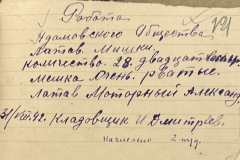 Работа
Адамовского Общества
Латав Мишки.
количество 28. двадцать восемь
мешка очень рватые.
Латав Моторный Александ
31/VIII 42. Кладовщик И Дмитриев.
Начислено 2 труд.